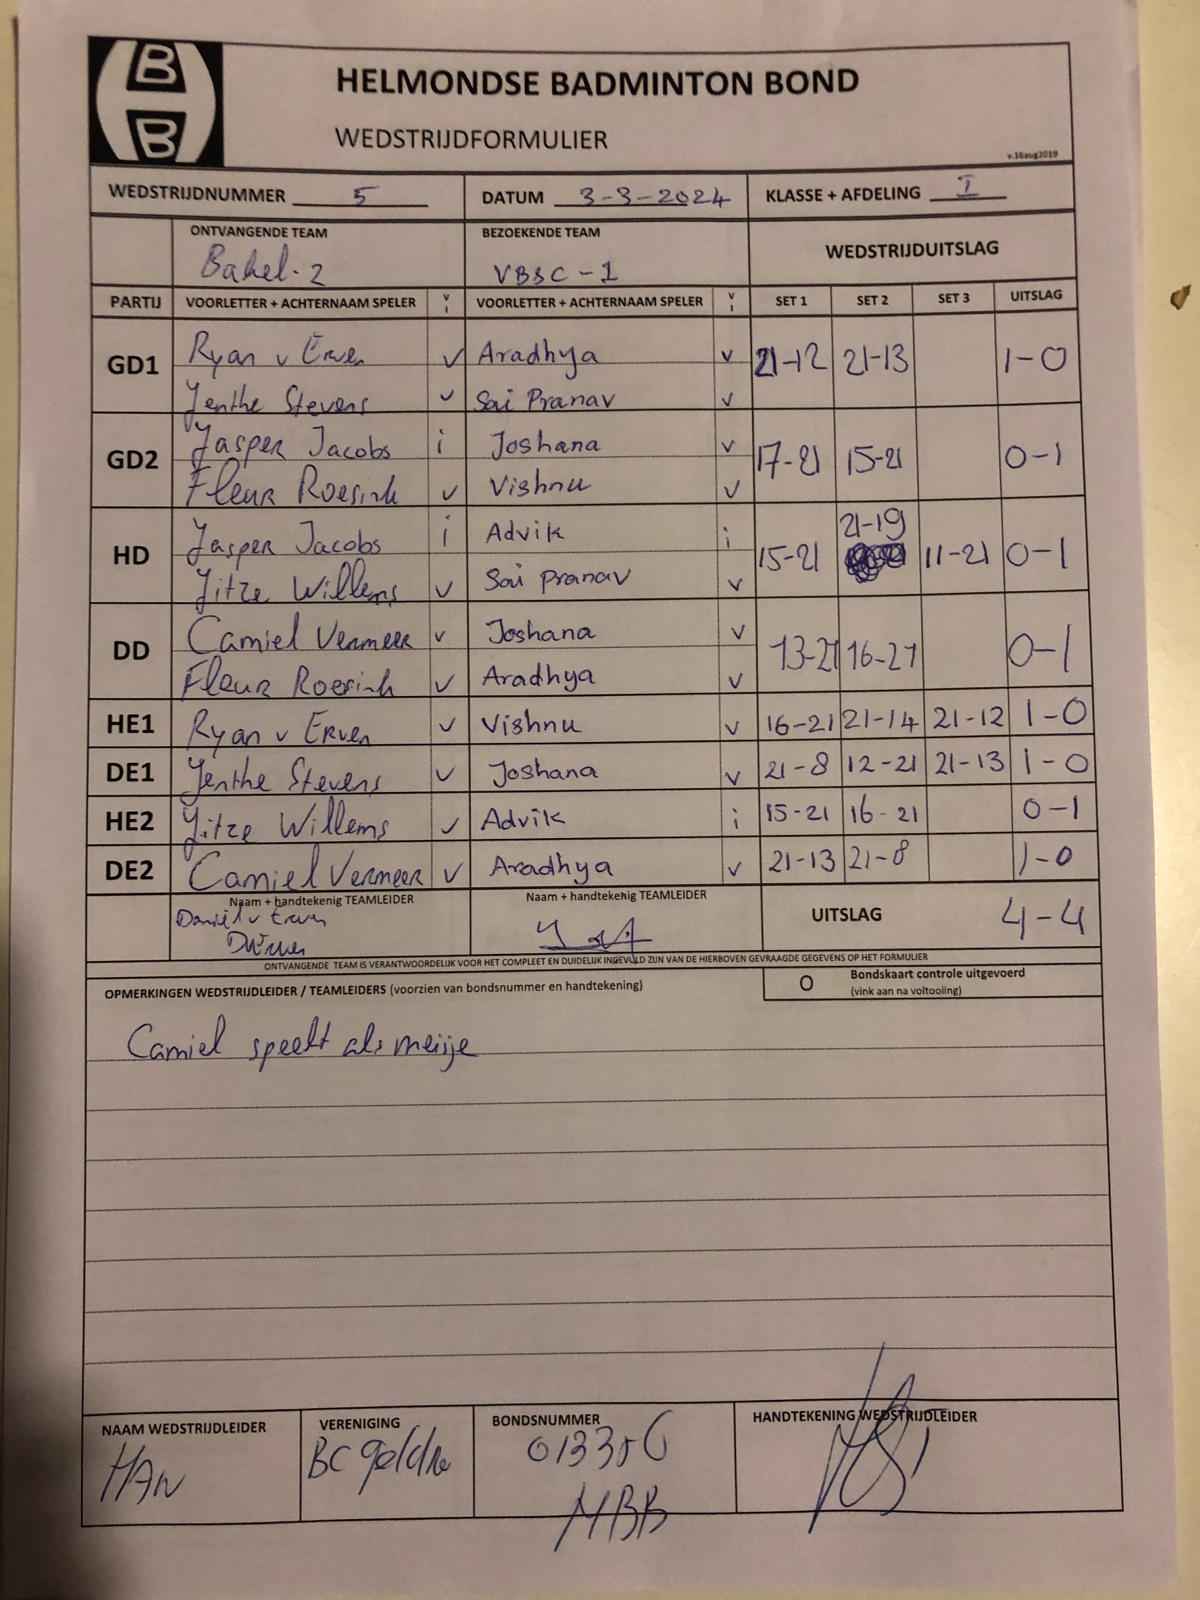 B
B
HELMONDSE BADMINTON BOND
WEDSTRIJDFORMULIER
v.16aug2019
WEDSTRIJDNUMMER 5 DATUM 3-3-2024 KLASSE + AFDELING I
ONTVANGENDE TEAM BEZOEKENDE TEAM WEDSTRIJDUITSLAG
Bakel-2 VBSC-1
PARTIJ VOORLETTER + ACHTERNAAM SPELER v i VOORLETTER + ACHTERNAAM SPELER v i SET 1 SET 2 SET 3 UITSLAG
GD1 Ryan v Erven v Aradhya v 21-12 21-13 1-0
Jenthe Stevens v Sai Pranav v
GD2 Jasper Jacobs i Joshana v 17-21 15-21 0-1
Fleur Roesink v Vishnu v
HD Jasper Jacobs i Advik i 15-21 21-19 11-21 0-1
Jitze Willems v Sai Pranav v
DD Camiel Vermeer v Joshana v 13-21 16-21 0-1
Fleur Roesink v Aradhya v
HE1 Ryan v Erven v Vishnu v 16-21 21-14 21-12 1-0
DE1 Jenthe Stevens v Joshana v 21-8 12-21 21-13 1-0
HE2 Jitze Willems v Advik i 15-21 16-21 0-1
DE2 Camiel Vermeer v Aradhya v 21-13 21-8 1-0
Naam + handtekenig TEAMLEIDER Naam + handtekenig TEAMLEIDER UITSLAG 4-4
Daniël v Erven
ONTVANGENDE TEAM IS VERANTWOORDELIJK VOOR HET COMPLEET EN DUIDELIJK INGEVULD ZIJN VAN DE HIERBOVEN GEVRAAGDE GEGEVENS OP HET FORMULIER
OPMERKINGEN WEDSTRIJDLEIDER / TEAMLEIDERS (voorzien van bondsnummer en handtekening) O Bondskaart controle uitgevoerd
(vink aan na voltooiing)
Camiel speelt als meisje
NAAM WEDSTRIJDLEIDER VERENIGING BONDSNUMMER HANDTEKENING WEDSTRIJDLEIDER
HAN BC